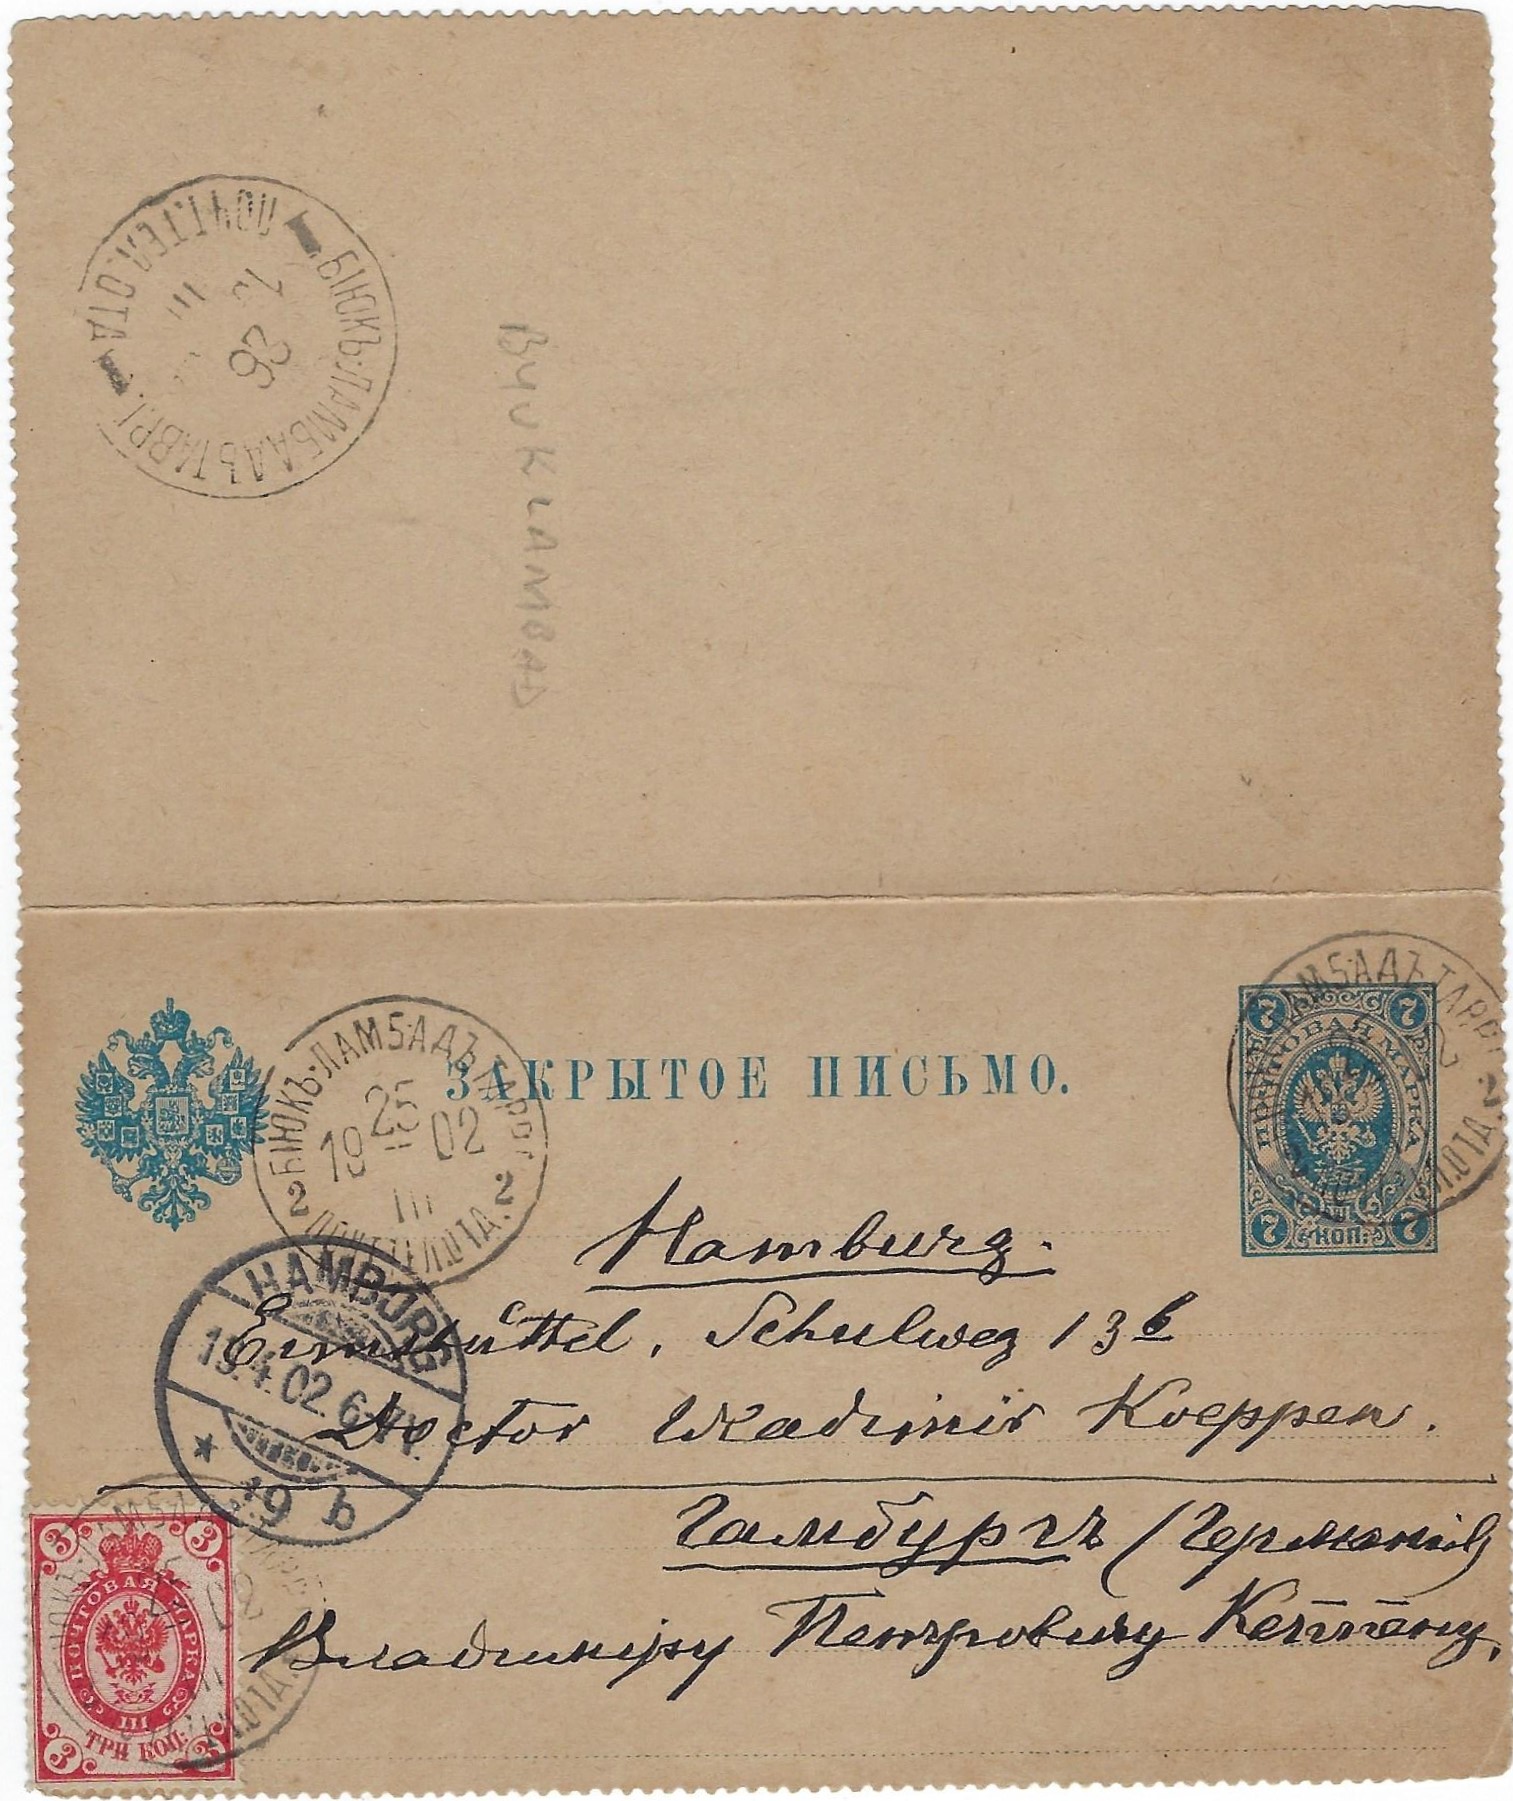 БІЮКЪ-ЛАМБАДЪ ТАВР. Г.
ПОЧТ. ТЕЛ. ОТД.
26
III
BYUKLAMBAD
ЗАКРЫТОЕ ПИСЬМО.
БІЮКЪ-ЛАМБАДЪ ТАВР. Г.
25
19 02
III
2 2
ПОЧТ. ТЕЛ. ОТД.
7 7
ПОЧТОВАЯ МАРКА
7 КОП. 7
ЛАМБАДЪ ТАВР
ОТД.
Hamburg.
HAMBURG
4.02. 6-7V.
* 19 b
Eimsbüttel, Schulweg 13 b
Doctor Wladimir Koeppen.
Гамбургъ (Германія)
Владиміру Петровичу Кеппену.
3 3
ПОЧТОВАЯ МАРКА
III
3 ТРИ КОП. 3
02